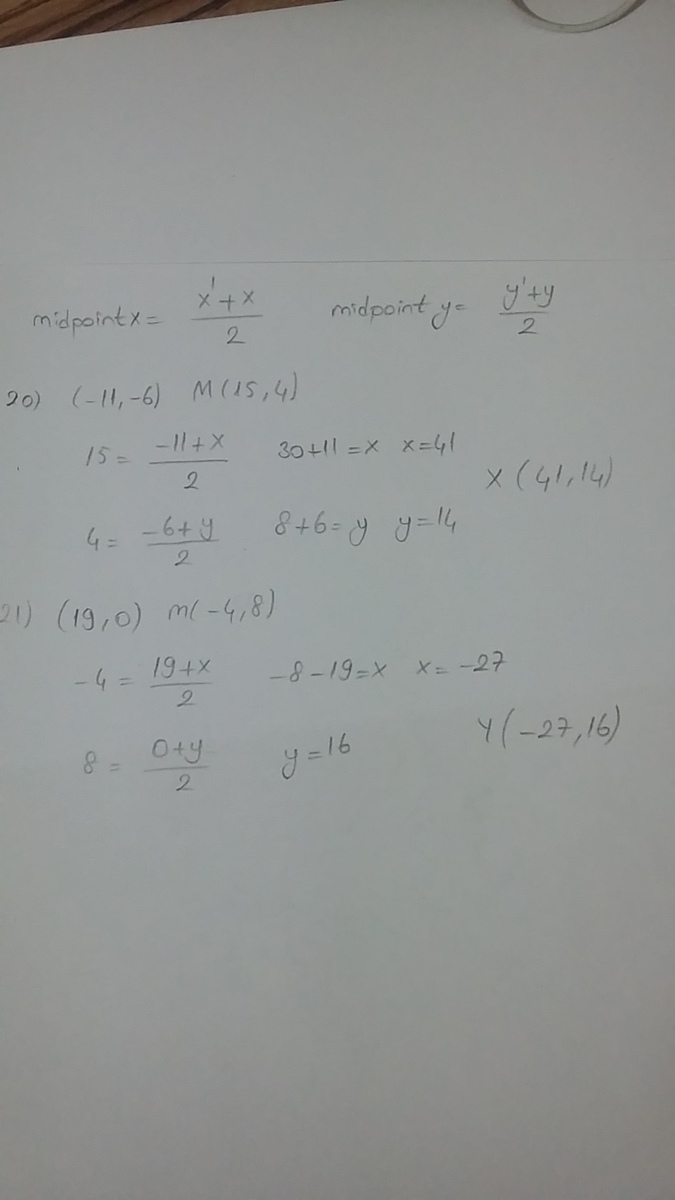 midpoint x = x'+x/2 midpoint y = y'+y/2
20) (-11,-6) M(15,4)
15 = -11+x/2 30+11=x x=41
X(41,14)
4 = -6+y/2 8+6=y y=14
21) (19,0) m(-4,8)
-4 = 19+x/2 -8-19=x x=-27
Y(-27,16)
8 = 0+y/2 y=16